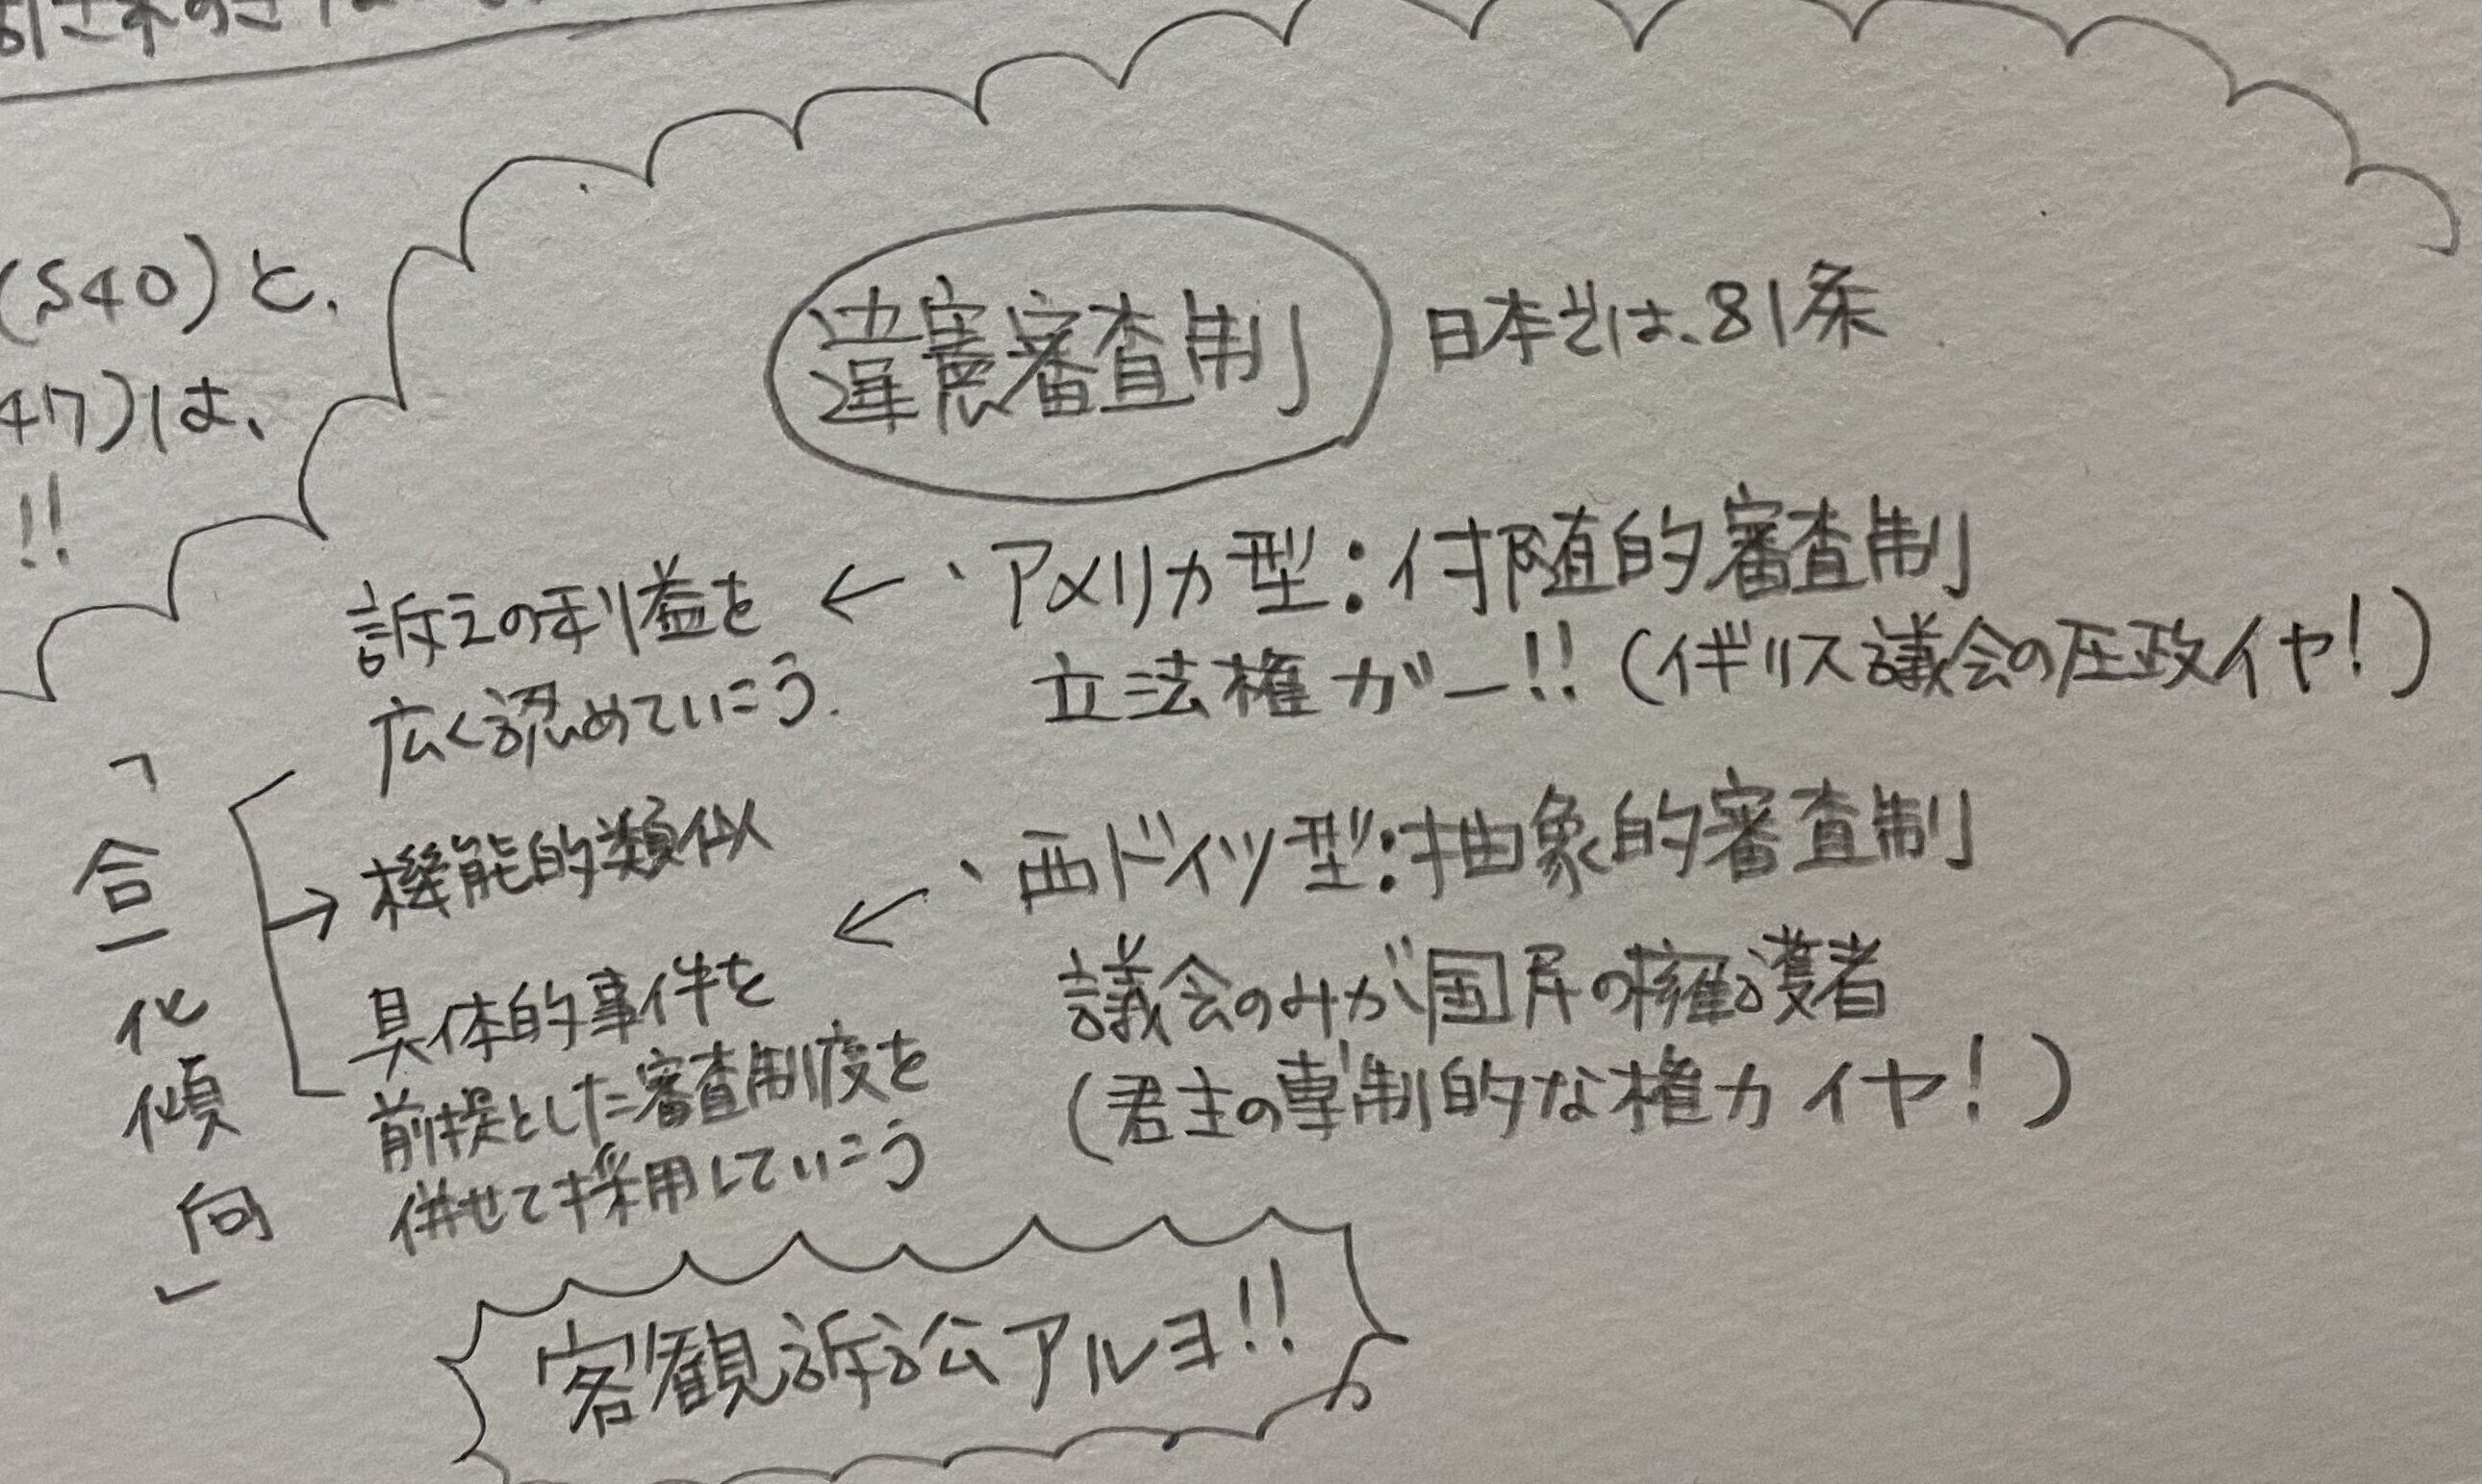 (S40)と、
47)は、
!!
違憲審査制
日本では、81条
・アメリカ型:付随的審査制
立法権がー!!(イギリス議会の圧政イヤ!)
←
訴えの利益を
広く認めていこう.
・西ドイツ型:抽象的審査制
議会のみが国民の擁護者
(君主の専制的な権力イヤ!)
←
具体的事件を
前提とした審査制度を
併せて採用していこう
→機能的類似
「合一化傾向」
客観訴訟アルヨ!!